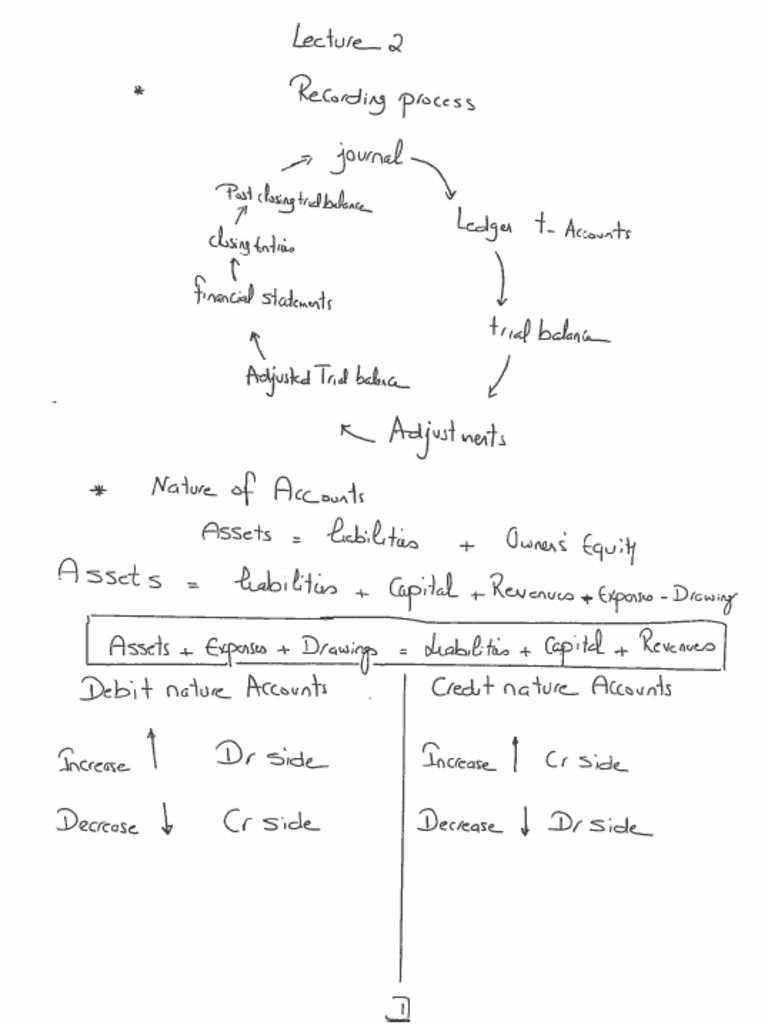 Lecture 2
* Recording process
journal
Ledger t- Accounts
trial balance
Adjustments
Adjusted Trial balance
financial statements
closing Entries
Post closing trial balance
* Nature of Accounts
Assets = liabilities + Owner's Equity
Assets = liabilities + Capital + Revenues + Expenses - Drawing
Assets + Expenses + Drawings = Liabilities + Capital + Revenues
Debit nature Accounts
Increase ↑ Dr side
Decrease ↓ Cr side
Credit nature Accounts
Increase ↑ Cr side
Decrease ↓ Dr side
1